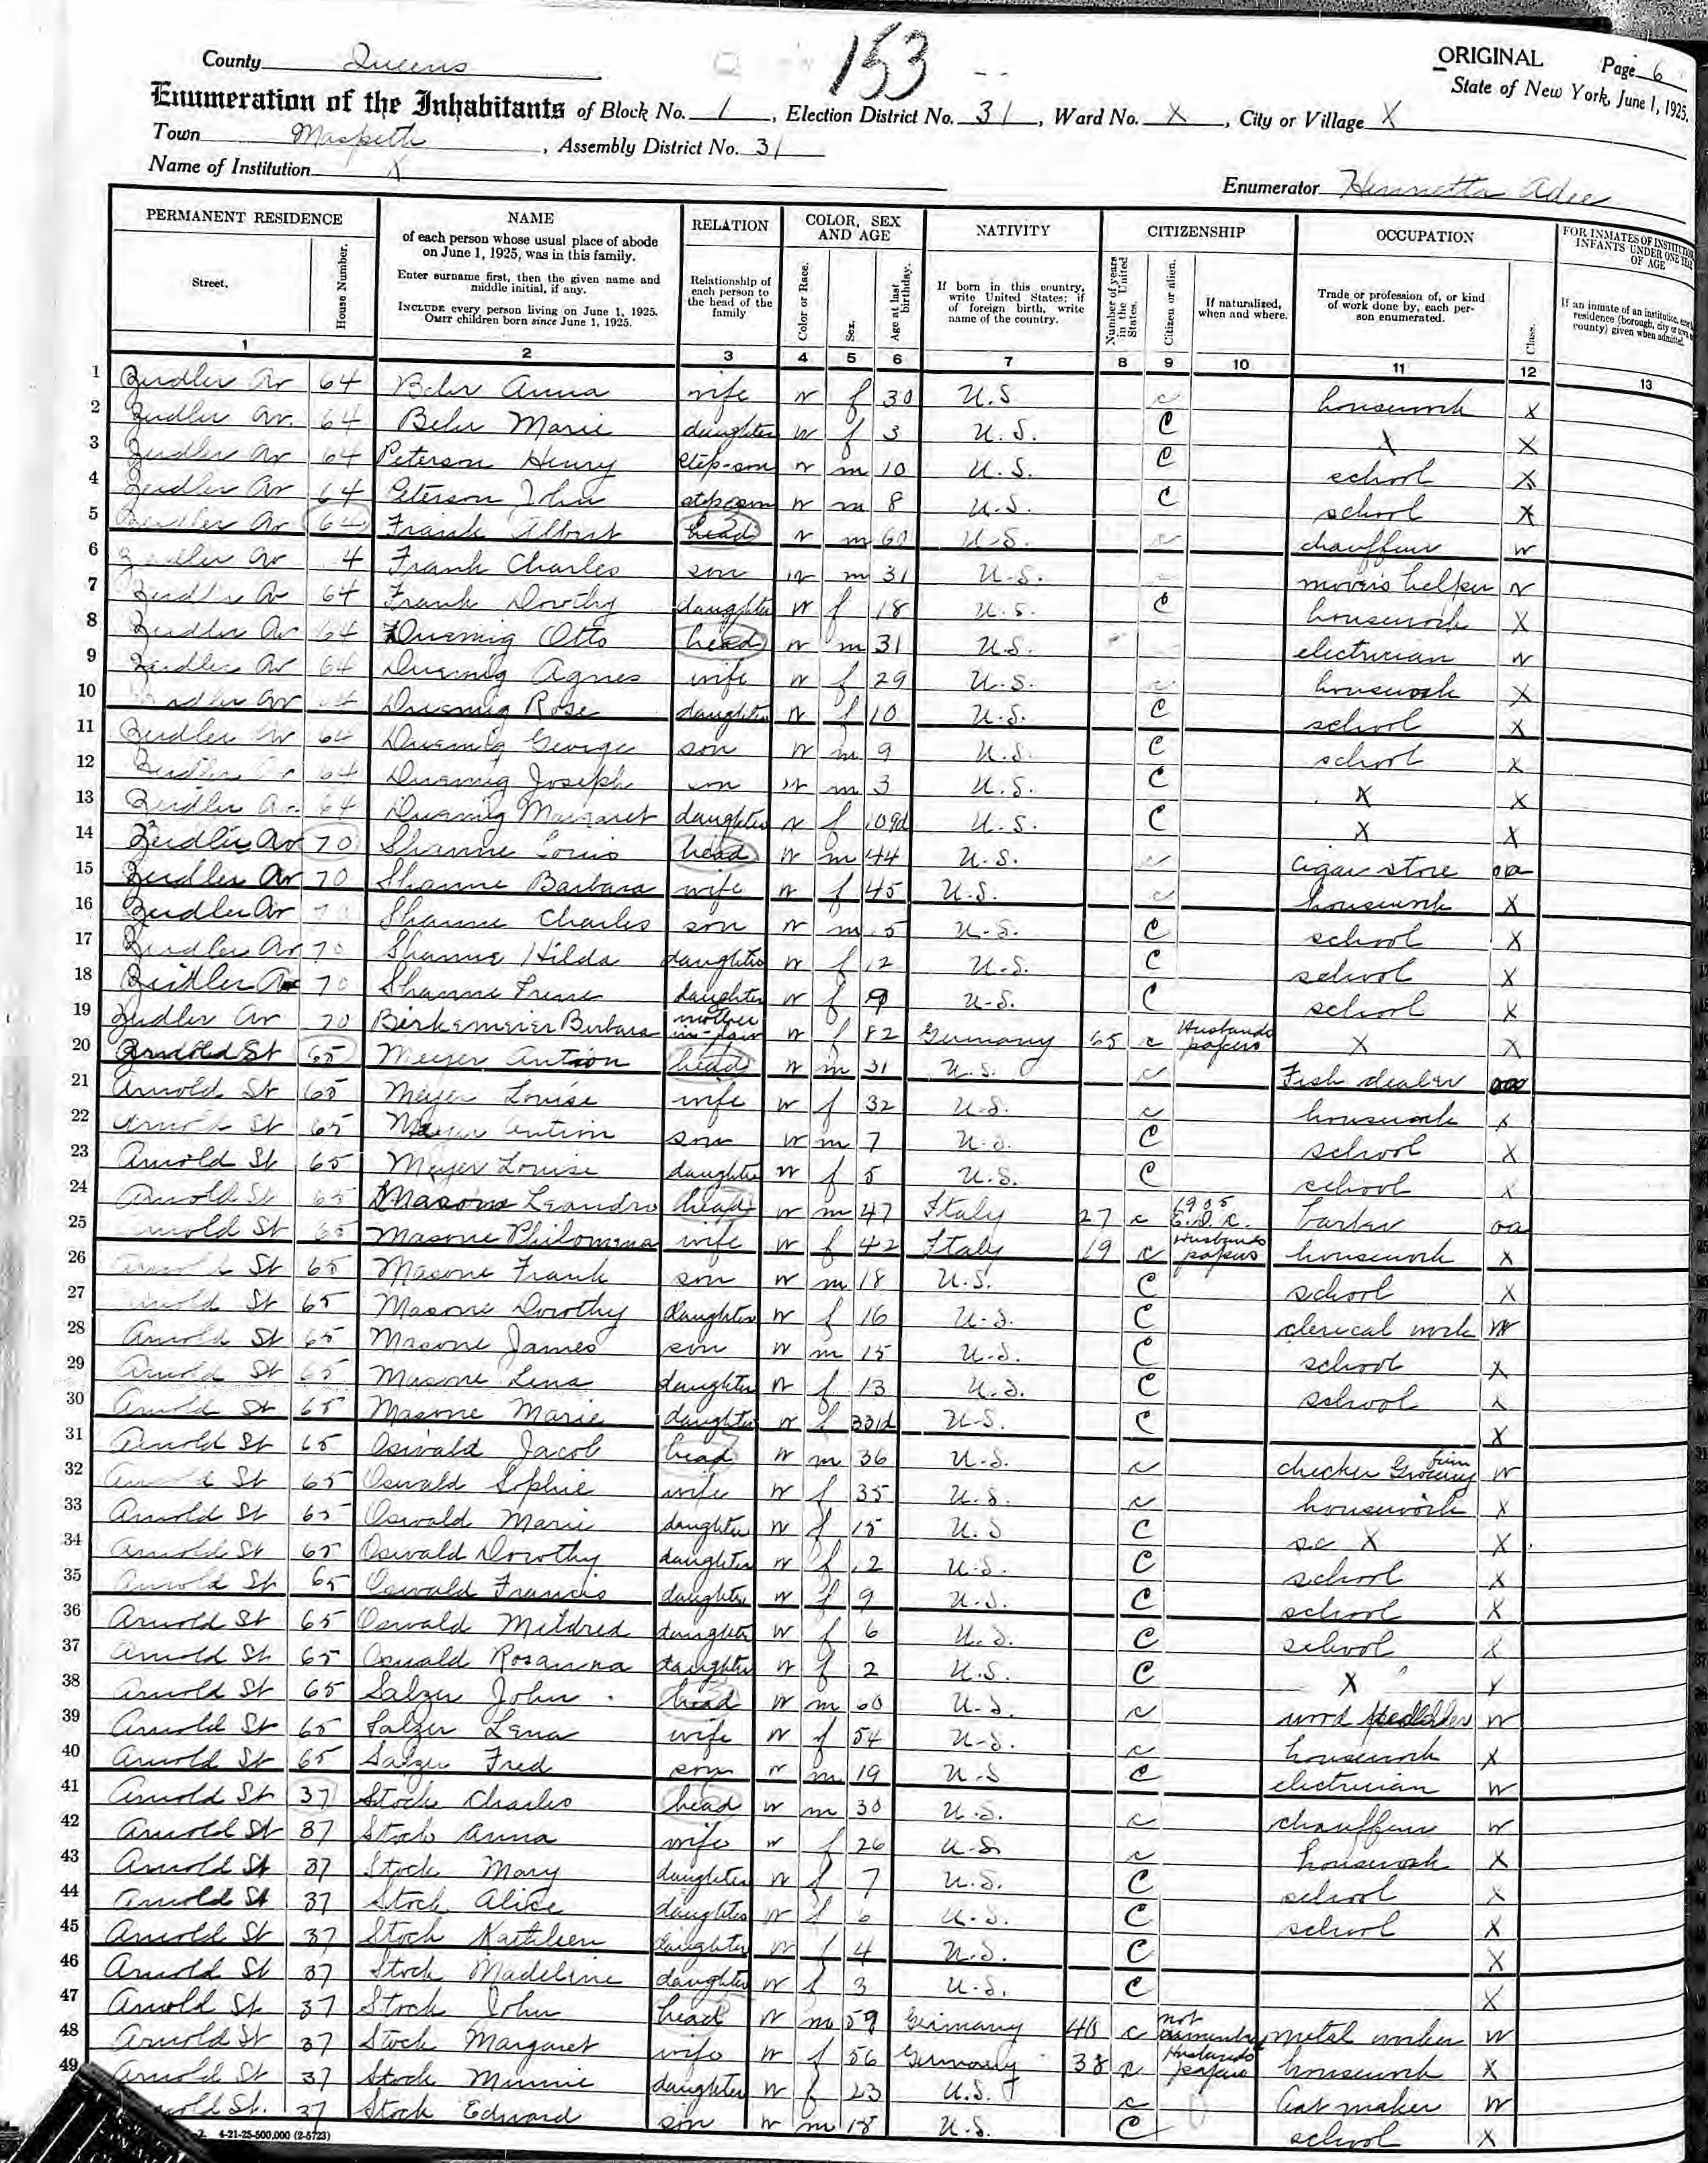 153
ORIGINAL Page 6
County Queens State of New York, June 1, 1925.
Enumeration of the Inhabitants of Block No. 1, Election District No. 31, Ward No. X, City or Village X
Town Maspeth, Assembly District No. 31
Name of Institution X Enumerator Henrietta Adee
PERMANENT RESIDENCE NAME RELATION COLOR, SEX AND AGE NATIVITY CITIZENSHIP OCCUPATION FOR INMATES OF INFANTS UNDER ONE OF AGE
Street. House Number. of each person whose usual place of abode on June 1, 1925, was in this family. Enter surname first, then the given name and middle initial, if any. INCLUDE every person living on June 1, 1925. OMIT children born since June 1, 1925. Relationship of each person to the head of the family Color or Race. Sex. Age at last birthday. If born in this country, write United States; if of foreign birth, write name of the country. Number of years in the United States. Citizen or alien. If naturalized, when and where. Trade or profession of, or kind of work done by, each person enumerated. Class. If an inmate of an institution, residence (borough, city or county) given when admitted.
1 2 3 4 5 6 7 8 9 10 11 12 13
1 Zeidler Av 64 Behr Anna wife w f 30 U.S c housework X
2 Zeidler Av. 64 Behr Marie daughter w f 3 U.S. C X X
3 Zeidler Av 64 Peterson Henry step-son w m 10 U.S. C school X
4 Zeidler Av 64 Peterson John stepson w m 8 U.S. C school X
5 Zeidler Av 64 Frank Albert head w m 60 U.S. c chauffeur w
6 Zeidler Av 4 Frank Charles son w m 31 U.S. helper w
7 Zeidler Av 64 Frank Dorothy daughter w f 18 U.S. C housework X
8 Zeidler Av 64 Duemig Otto head w m 31 U.S. electrician w
9 Zeidler Av 64 Duemig Agnes wife w f 29 U.S. c housework X
10 Zeidler Av 4 Duemig Rose daughter w f 10 U.S. C school X
11 Zeidler Av 64 Duemig George son w m 9 U.S. C school X
12 Zeidler Av 64 Duemig Joseph son w m 3 U.S. C X X
13 Zeidler Av. 64 Duemig Margaret daughter w f U.S. C X X
14 Zeidler Av 70 Shanne Louis head w m 44 U.S. c cigar store oa
15 Zeidler Av 70 Shanne Barbara wife w f 45 U.S. c housework X
16 Zeidler Av 70 Shanne Charles son w m 15 U.S. C school X
17 Zeidler Av 70 Shanne Hilda daughter w f 12 U.S. C school X
18 Zeidler Av 70 Shanne Irene daughter w f 9 U.S. C school X
19 Zeidler Av 70 Birkemeier Barbara mother in-law w f 82 Germany 65 c Husbands papers X X
20 Arnold St 65 Meyer Antion head w m 31 U.S. c Fish dealer
21 Arnold St 65 Meyer Louise wife w f 32 U.S. c housework x
22 Arnold St 65 Meyer Antion son w m 7 U.S. C school X
23 Arnold St 65 Meyer Louise daughter w f 5 U.S. C school X
24 Arnold St 65 Masone Leandro head w m 47 Italy 27 c 1905 barber oa
25 Arnold St 65 Masone Philomina wife w f 42 Italy 19 c Husbands papers housework X
26 Arnold St 65 Masone Frank son w m 18 U.S. C school X
27 Arnold St 65 Masone Dorothy daughter w f 16 U.S. C clerical work W
28 Arnold St 65 Masone James son w m 15 U.S. C school X
29 Arnold St 65 Masone Lena daughter w f 13 U.S. C school X
30 Arnold St 65 Masone Marie daughter w f U.S. C X
31 Arnold St 65 Oswald Jacob head w m 36 U.S. c checker Grocery firm w
32 Arnold St 65 Oswald Sophie wife w f 35 U.S. c housework X
33 Arnold St 65 Oswald Marie daughter w f 15 U.S C sc X X
34 Arnold St 65 Oswald Dorothy daughter w f 12 U.S. C school X
35 Arnold St 65 Oswald Francis daughter w f 9 U.S. C school X
36 Arnold St 65 Oswald Mildred daughter w f 6 U.S. C school X
37 Arnold St 65 Oswald Rosanna daughter w f 2 U.S. C X X
38 Arnold St 65 Salzer John head w m 60 U.S. c wood w
39 Arnold St 65 Salzer Lena wife w f 54 U.S. c housework X
40 Arnold St 65 Salzer Fred son w m 19 U.S C electrician W
41 Arnold St 37 Stock Charles head w m 30 U.S. c chauffeur w
42 Arnold St 37 Stock Anna wife w f 26 U.S. c housework X
43 Arnold St 37 Stock Mary daughter w f 7 U.S. C school X
44 Arnold St 37 Stock Alice daughter w f 6 U.S. C school X
45 Arnold St 37 Stock Kathleen daughter w f 4 U.S. C X
46 Arnold St 37 Stock Madeline daughter w f 3 U.S. C X
47 Arnold St. 37 Stock John head w m 59 Germany 40 c not metal worker w
48 Arnold St 37 Stock Margaret wife w f 56 Germany 38 c Husbands papers housework X
49 Arnold St 37 Stock Minnie daughter w f 23 U.S. c hat maker W
Arnold St. 37 Stock Edward son w m 18 U.S. C school X
4-21-25-500,000 (2-5723)